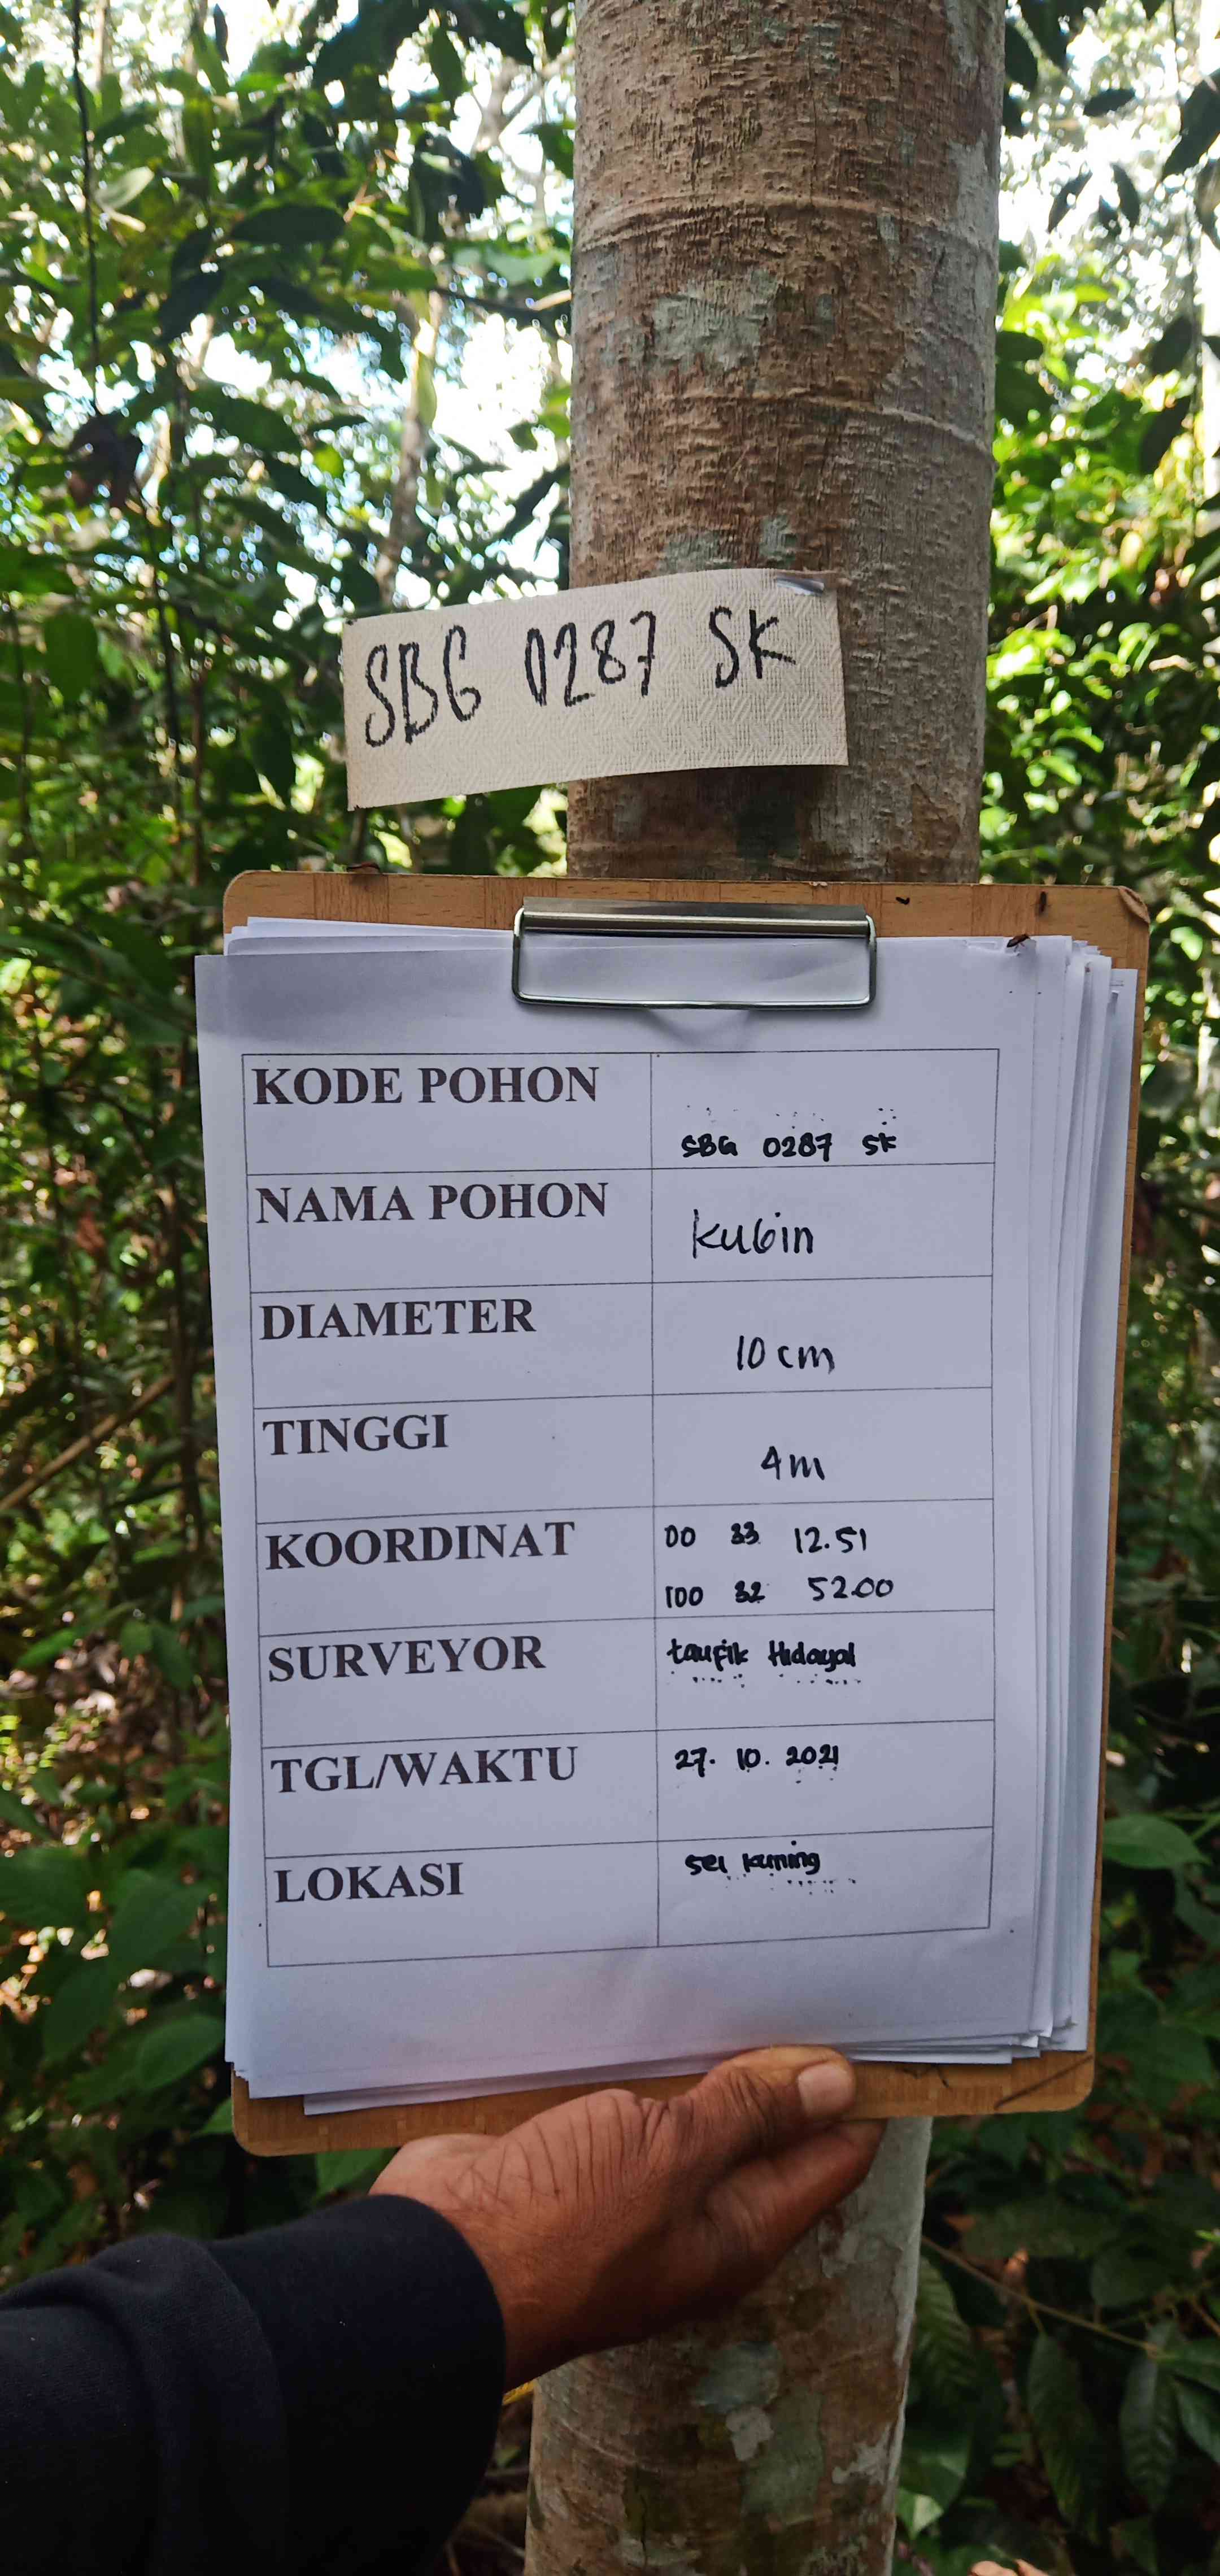 SBG 0287 SK
KODE POHON
SBG 0287 SK
NAMA POHON
kubin
DIAMETER
10 cm
TINGGI
4 m
KOORDINAT
00 33 12.51
100 32 52.00
SURVEYOR
taufik Hidayat
TGL/WAKTU
27. 10. 2021
LOKASI
sei kuning